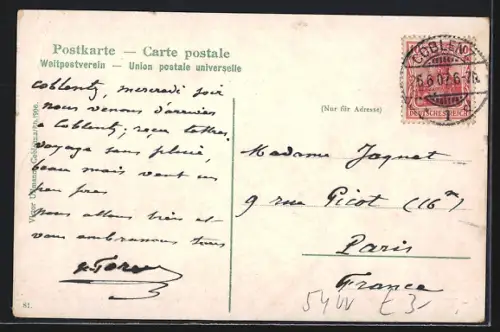 Postkarte — Carte postale
Weltpostverein — Union postale universelle
Coblentz, mercredi soir
nous venons d'arriver
à Coblentz; reçu lettres,
voyage sans pluie,
beau mais vent un
peu frais
Nous allons bien et
vous embrassons tous
(Nur für Adresse)
COBLENZ
6.07.6-7
DEUTSCHES REICH
Madame Jaquet
9 rue Picot (16e)
Paris
France
Victor
Coblenz
81.